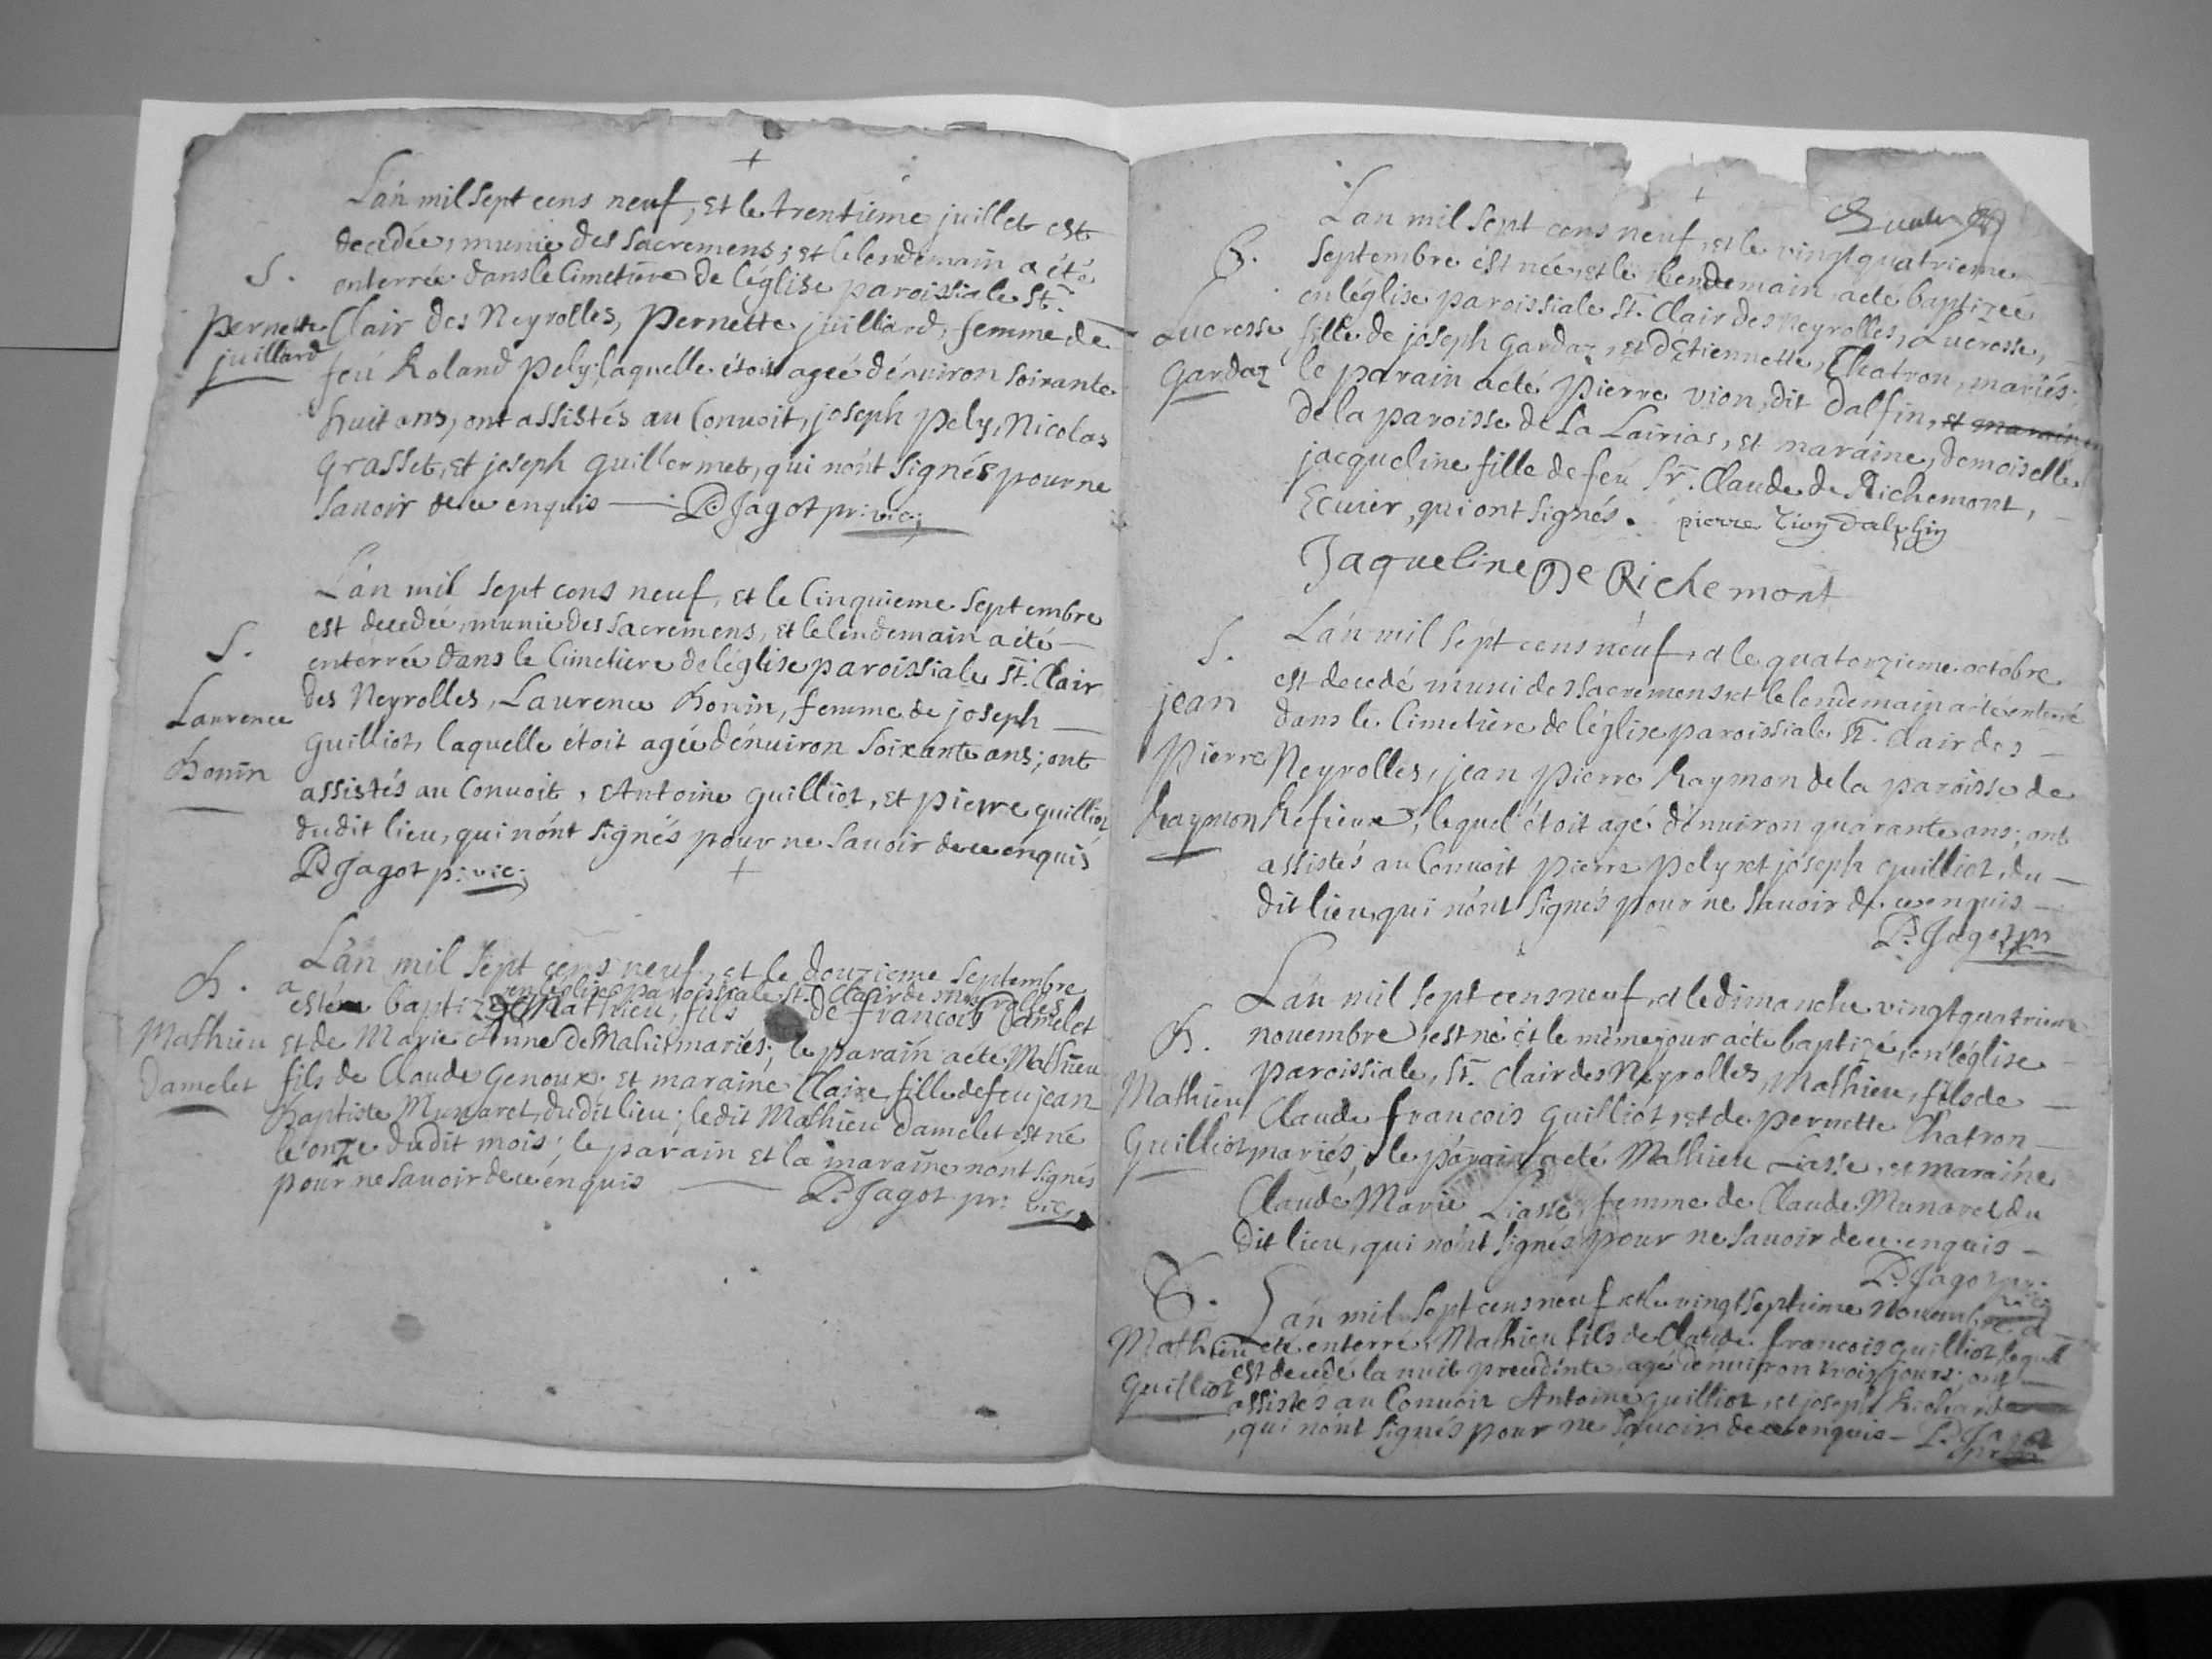 L'an mil sept cens neuf, et le trentieme juillet est
decedée, munie des sacremens, et le lendemain a été
S.
enterrée dans le Cimetiere de l'église paroissiale St.
pernette
juillard
Clair des Neyrolles, pernette juilliard, femme de
feu Roland pely, laquelle étoit agée d'enuiron soixante
huit ans, ont assistés au Conuoit, joseph pely, Nicolas
grasset, et joseph guillermet, qui n'ont signés pour ne
sauoir de ce enquis P. Jagot pr: vic:
L'an mil sept cens neuf, et le Cinquieme septembre
est decedée, munie des sacremens, et le lendemain a été
S.
enterrée dans le Cimetiere de l'église paroissiale St. Clair
Laurence
Bonin
des Neyrolles, Laurence Bonin, femme de joseph
guilliot, laquelle étoit agée d'enuiron soixante ans; ont
assistés au Conuoit, Antoine guilliot, et pierre guilliot
dudit lieu, qui n'ont signés pour ne sauoir de ce enquis
P. Jagot p: vic:
L'an mil sept cens neuf, et le douzieme septembre
B.
en l'église paroissiale St. Clair des neyrolles
a esté baptizé Mathieu, fils de francois Damelet
Mathieu
Damelet
et de Marie Anne de Mahut mariés; le parain a eté Mathieu
fils de Claude genoux. et maraine Claire fille de feu jean
Baptiste Munaret, dudit lieu; ledit Mathieu Damelet est né
le onze dudit mois; le parain et la maraine n'ont signés
pour ne sauoir de ce enquis P. Jagot pr: vic:
L'an mil sept cens neuf, et le vingt quatrieme
B.
septembre est née, et le lendemain a eté baptizée
en l'église paroissiale St. Clair des neyrolles, Lucresse,
Lucresse
gardaz
fille de joseph gardaz, et d'Etiennette Chatron, mariés;
le parain a eté pierre vion, dit dalfin, et maraine
de la paroisse de La Lairias, et maraine, demoiselle
jacqueline fille de feu Sr. Claude de Richemont,
Ecuier, qui ont signés. pierre vion dalphin
Jaqueline De Richemont
L'an mil sept cens neuf, et le quatorzieme octobre
S.
est decedé muni des sacremens, et le lendemain a eté enterré
jean
pierre
Raymon
dans le Cimetiere de l'église paroissiale St. Clair des
Neyrolles, jean pierre Raymon de la paroisse de
lequel étoit agé d'enuiron quarante ans; ont
assistés au Conuoit pierre pely et joseph guilliot, du
dit lieu, qui n'ont signés pour ne sauoir de ce enquis
P. Jagot pr
L'an mil sept cens neuf, et le dimanche vingt quatrieme
B.
nouembre, est né et le même jour a eté baptizé, en l'église
paroissiale, St. Clair des Neyrolles, Mathieu, fils de
Mathieu
guilliot
Claude francois guilliot, et de pernette Chatron
mariés; le parain a eté Mathieu Liasse, et maraine
Claude Marie Liasse, femme de Claude Munaret, du
dit lieu, qui n'ont signés pour ne sauoir de ce enquis
P. Jagot pr: vic:
S.
L'an mil sept cens neuf, et le vingt septieme nouembre a
Mathieu
guilliot
eté enterré Mathieu fils de Claude francois guilliot, lequel
est decedé la nuit precedente, agé d'enuiron trois jours; ont
assistés au Conuoit Antoine guilliot, et joseph Richard
qui n'ont signés pour ne sauoir de ce enquis P. Jagot